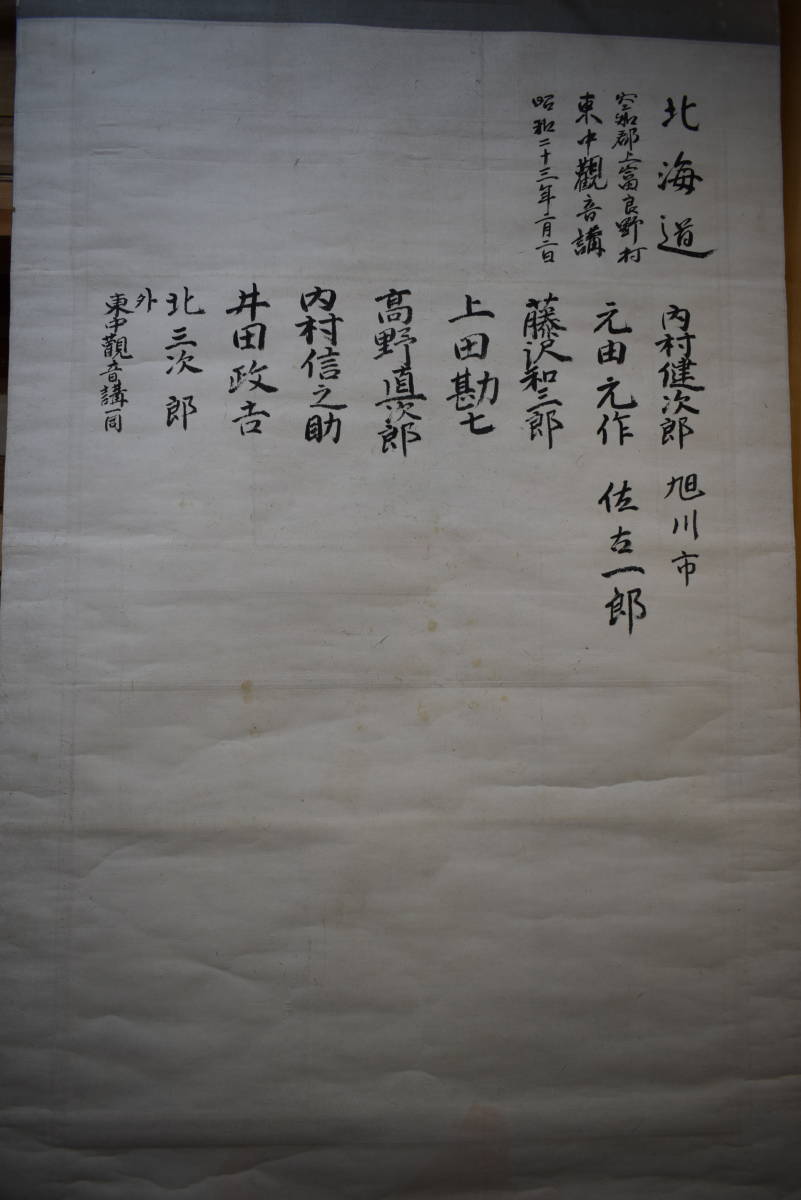 北海道
空知郡上富良野村
東中觀音講
昭和二十三年二月二日
内村健次郎
元由元作
藤沢和三郎
上田勘七
高野直次郎
内村信之助
井田政吉
北三次郎
外
東中觀音講一同
旭川市
佐古一郎